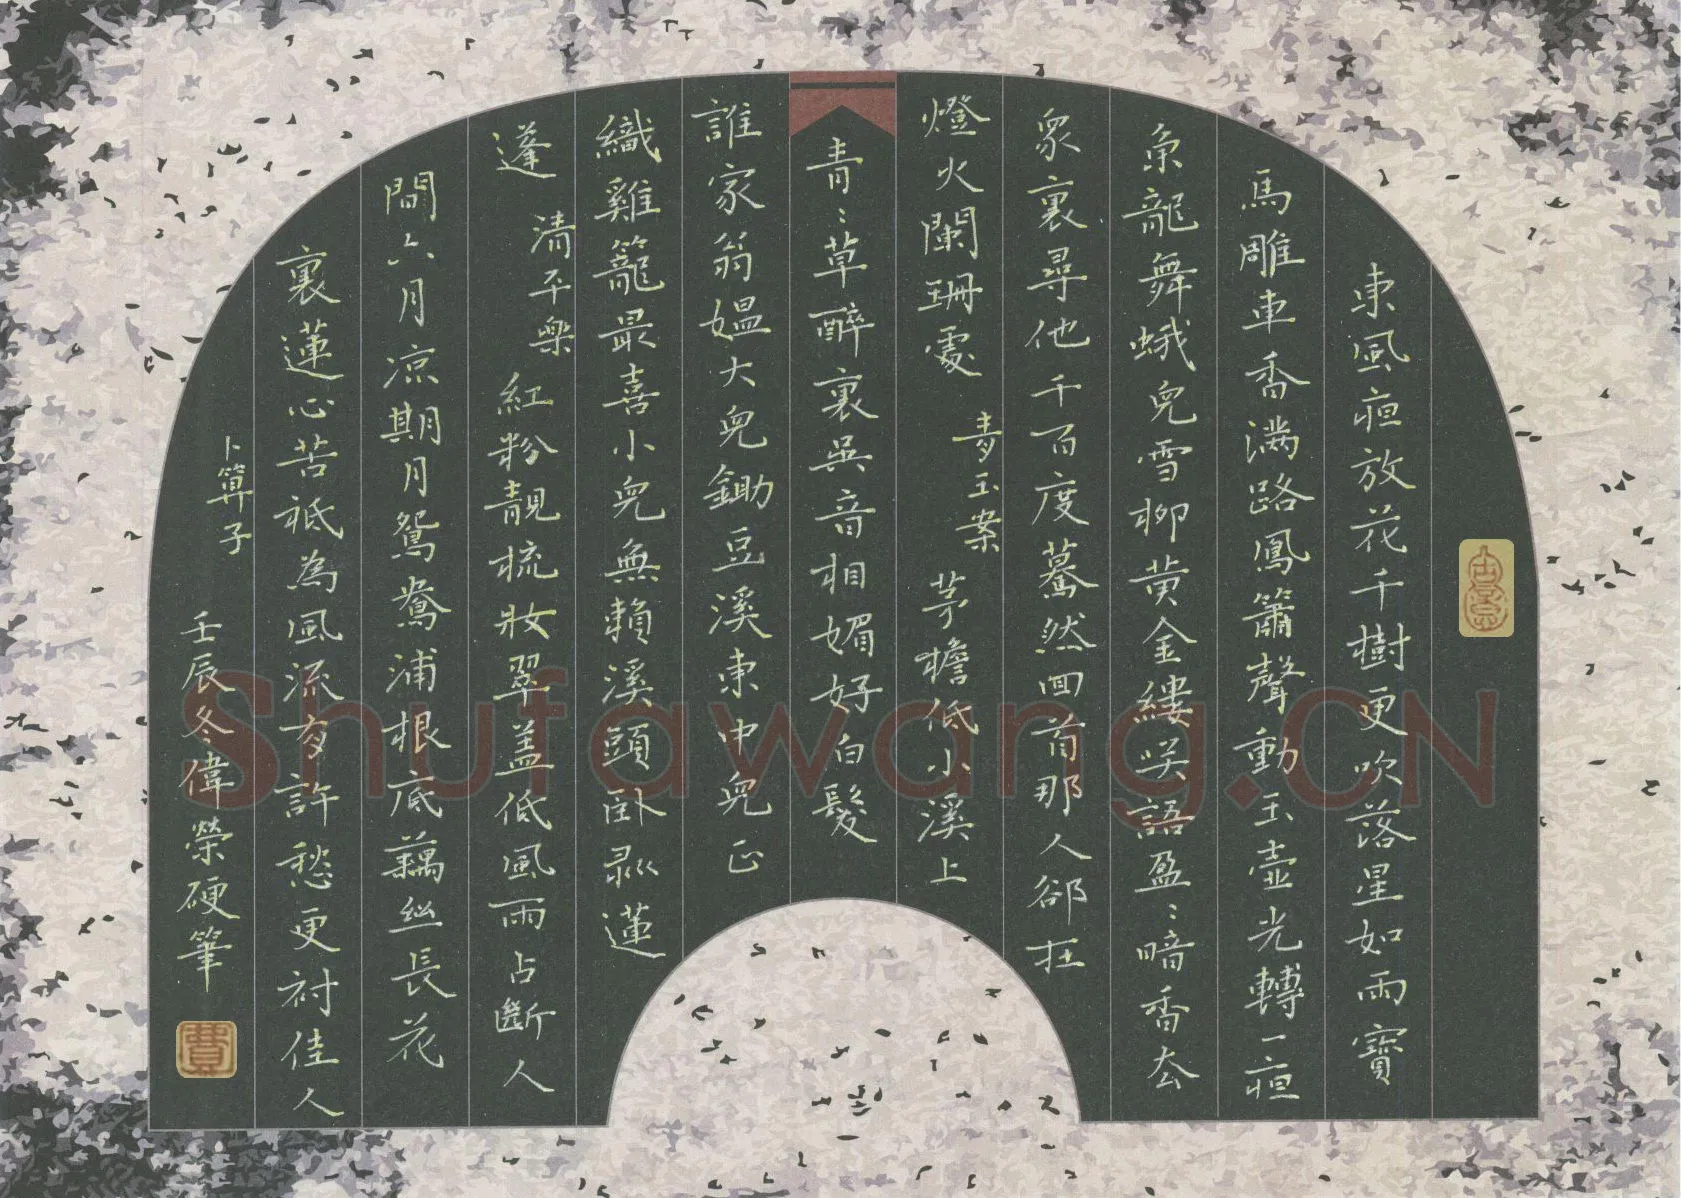 東風夜放花千樹更吹落星如雨寶
馬雕車香滿路鳳簫聲動玉壺光轉一夜
魚龍舞蛾兒雪柳黃金縷咲語盈〻暗香去
眾裏尋他千百度驀然回首那人卻在
燈火闌珊處 青玉案 茅檐低小溪上
青〻草醉裏吳音相媚好白髮
誰家翁媼大兒鋤豆溪東中兒正
織雞籠最喜小兒無賴溪頭臥剝蓮
蓬 清平樂 紅粉靚梳妝翠蓋低風雨占斷人
間六月涼期月鴛鴦浦根底藕絲長花
裏蓮心苦祗為風流有許愁更襯佳人
卜算子
壬辰冬偉榮硬筆
賈
Shufawang.CN